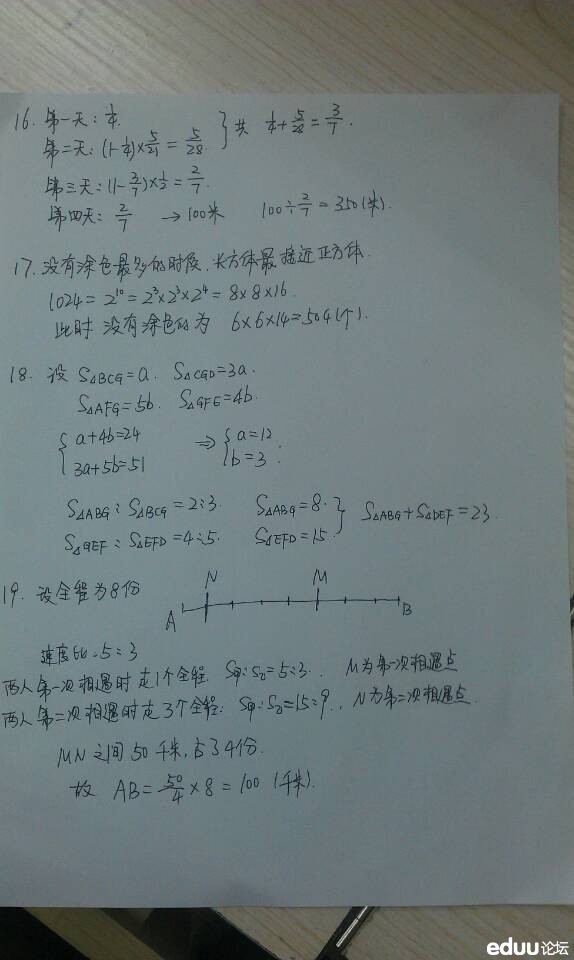 16. 第一天: 1/4. } 共 1/4+5/28=3/7.
第二天: (1-1/4)×5/21=5/28.
第三天: (1-3/7)×1/2=2/7.
第四天: 2/7 → 100米 100÷2/7=350(米).
17. 没有涂色最多的时候, 长方体最接近正方体.
1024=2¹⁰=2³×2³×2⁴=8×8×16.
此时 没有涂色的为 6×6×14=504(个).
18. 设 S△BCG=a. S△CGD=3a.
S△AFG=5b. S△GFE=4b.
{ a+4b=24 ⇒ { a=12
3a+5b=51 b=3.
S△ABG:S△BCG=2:3. S△ABG=8. } S△ABG+S△DEF=23.
S△GEF:S△EFD=4:5. S△EFD=15.
19. 设全程为8份 A N M B
速度比:5:3
两人第一次相遇时走1个全程. S甲:S乙=5:3. M为第一次相遇点
两人第二次相遇时走3个全程: S甲:S乙=15:9. N为第二次相遇点.
MN之间50千米, 占34份.
故 AB=50/4×8=100(千米).
eduu论坛